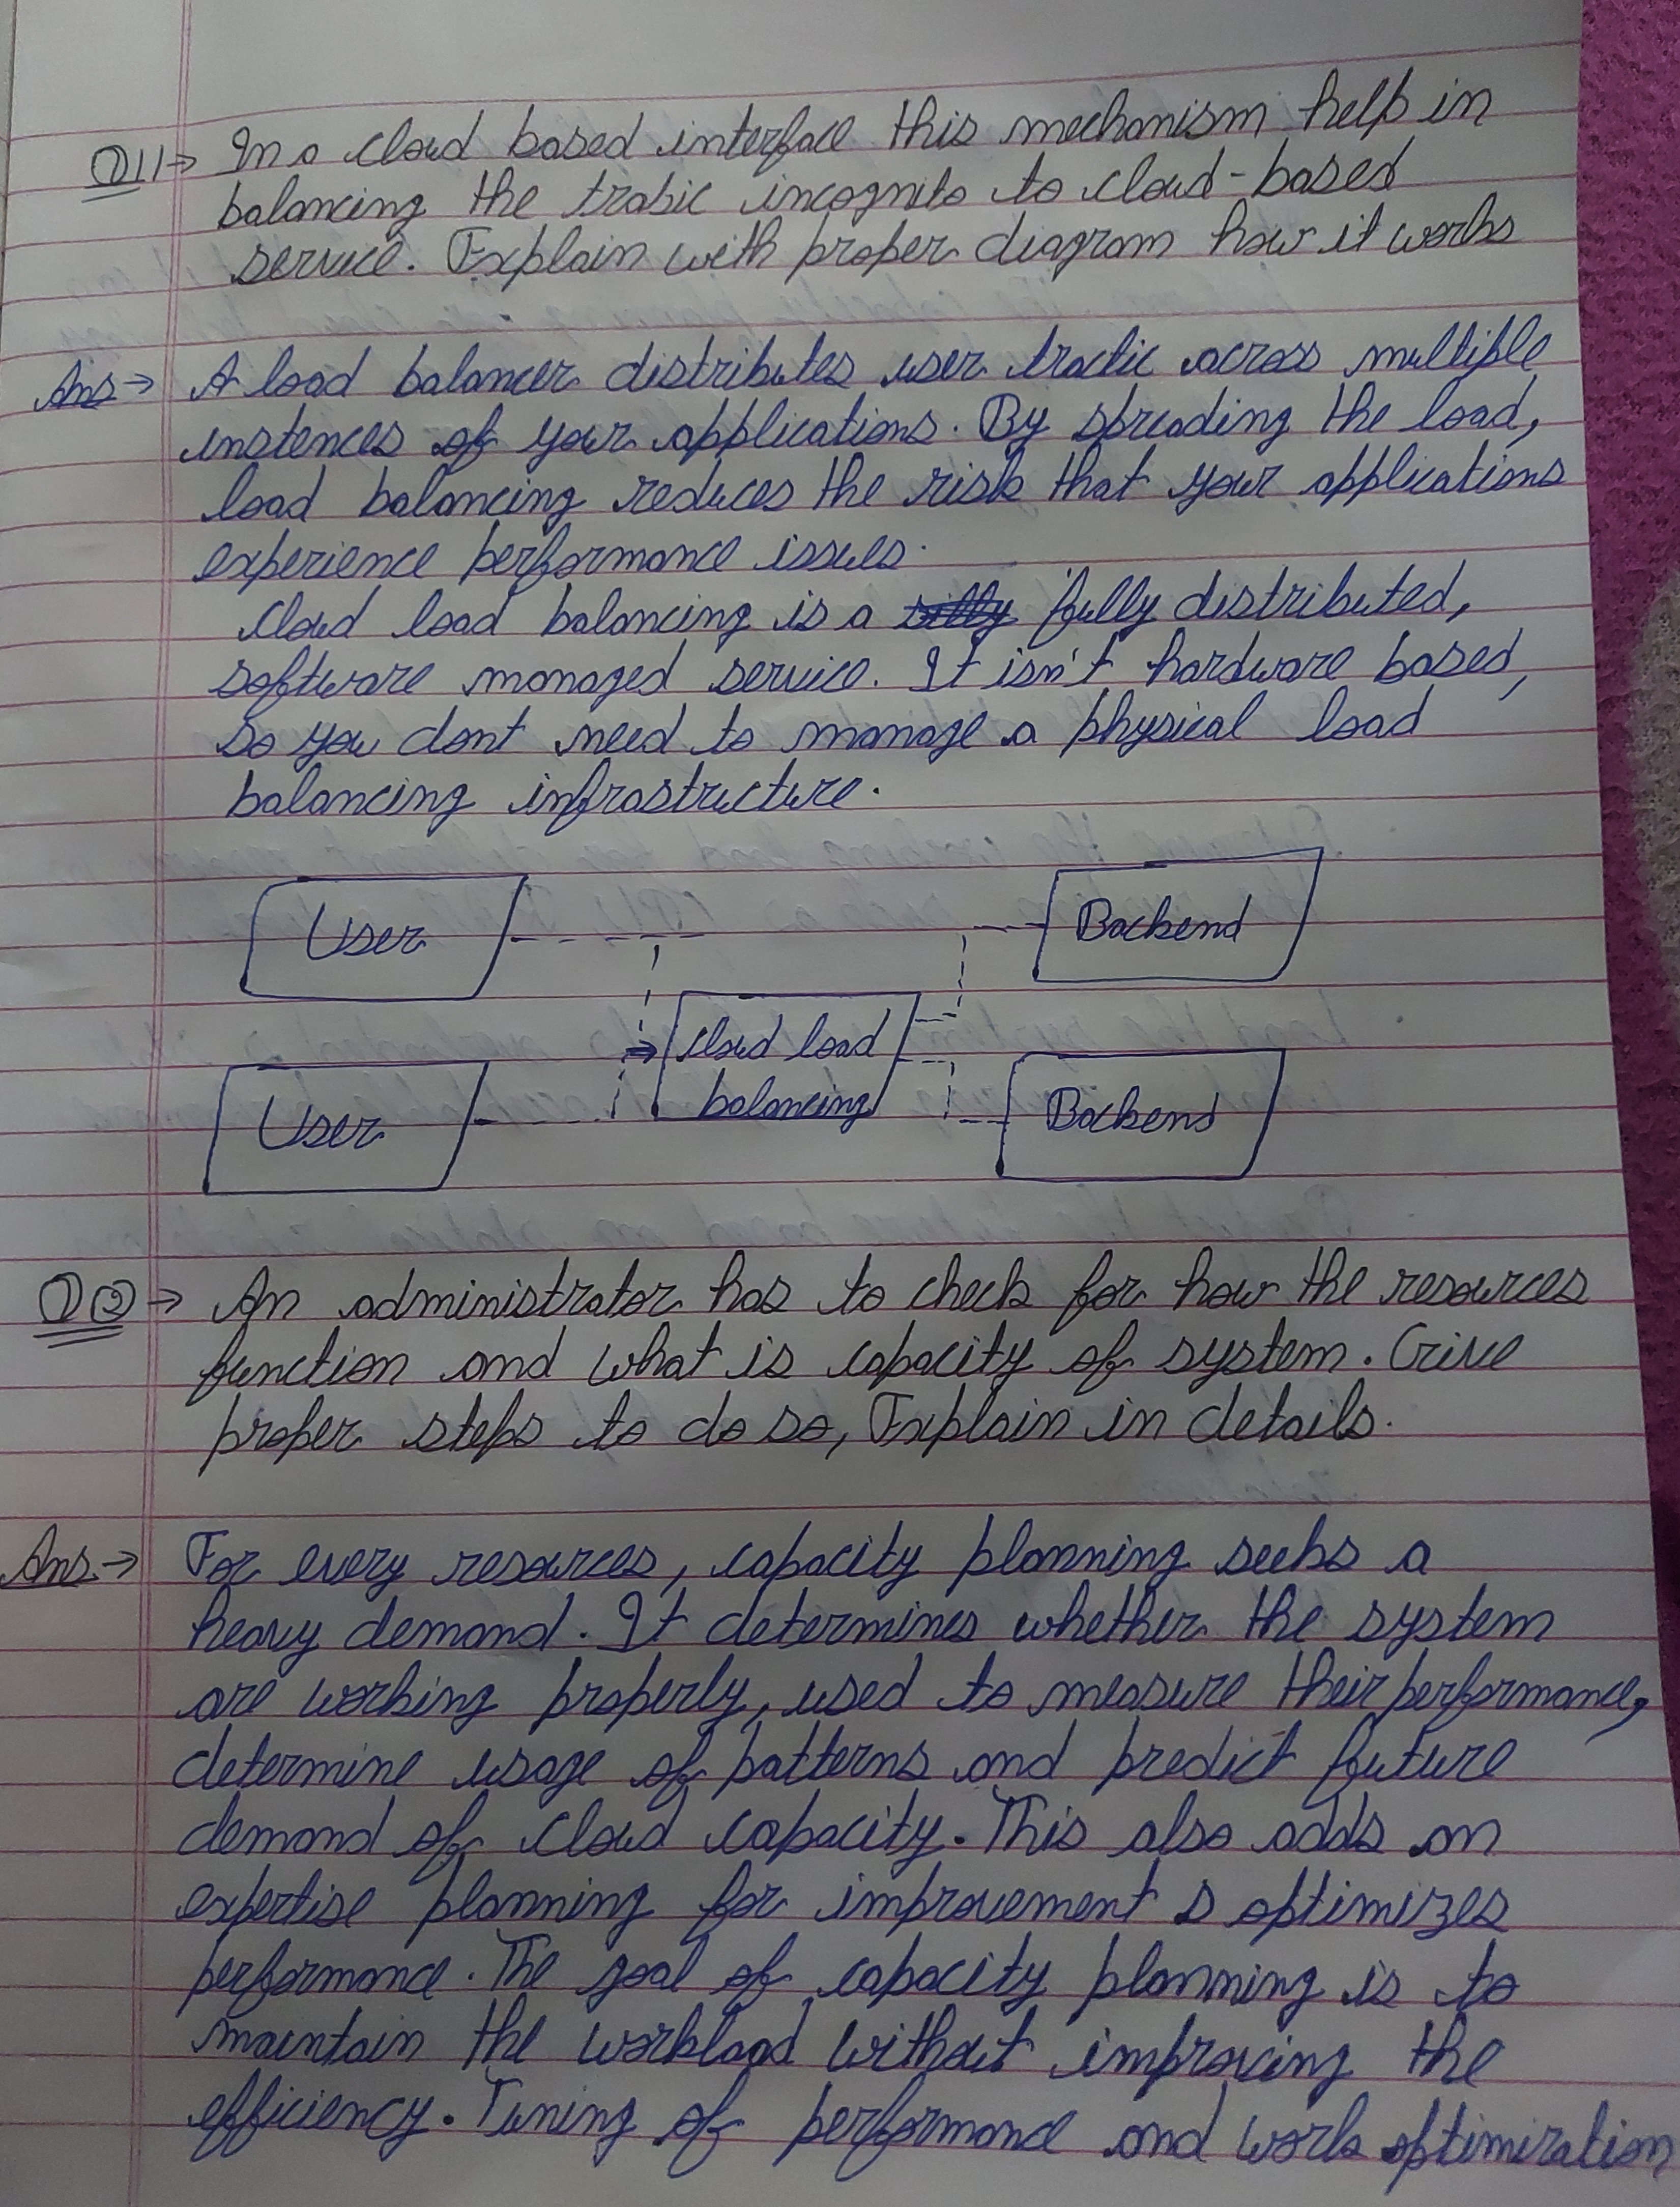 Q11→ In a cloud based interface this mechanism help in
balancing the trabic incognito to cloud-based
service. Explain with proper diagram how it works
Ans→ A load balancer distributes user tractic across multiple
instences of your applications. By spreading the load,
load balancing reduces the risk that your applications
experience performance issues.
Cloud load balancing is a fully distributed,
software managed service. It isn't hardware based,
so you dont need to manage a physical load
balancing infrastructure.
User
Backend
Cloud load
balancing
User
Backend
Q②→ An administrator has to check for how the resources
function and what is capacity of system. Give
proper steps to do so, Explain in details.
Ans.→ For every resources, capacity planning seeks a
heavy demand. It determines whether the system
are working properly, used to measure their performance,
determine usage of patterns and predict future
demand of cloud capacity. This also adds an
expertise planning for improvement s optimizes
performance. The goal of capacity planning is to
maintain the workload without improving the
efficiency. Tuning of performance and work optimization